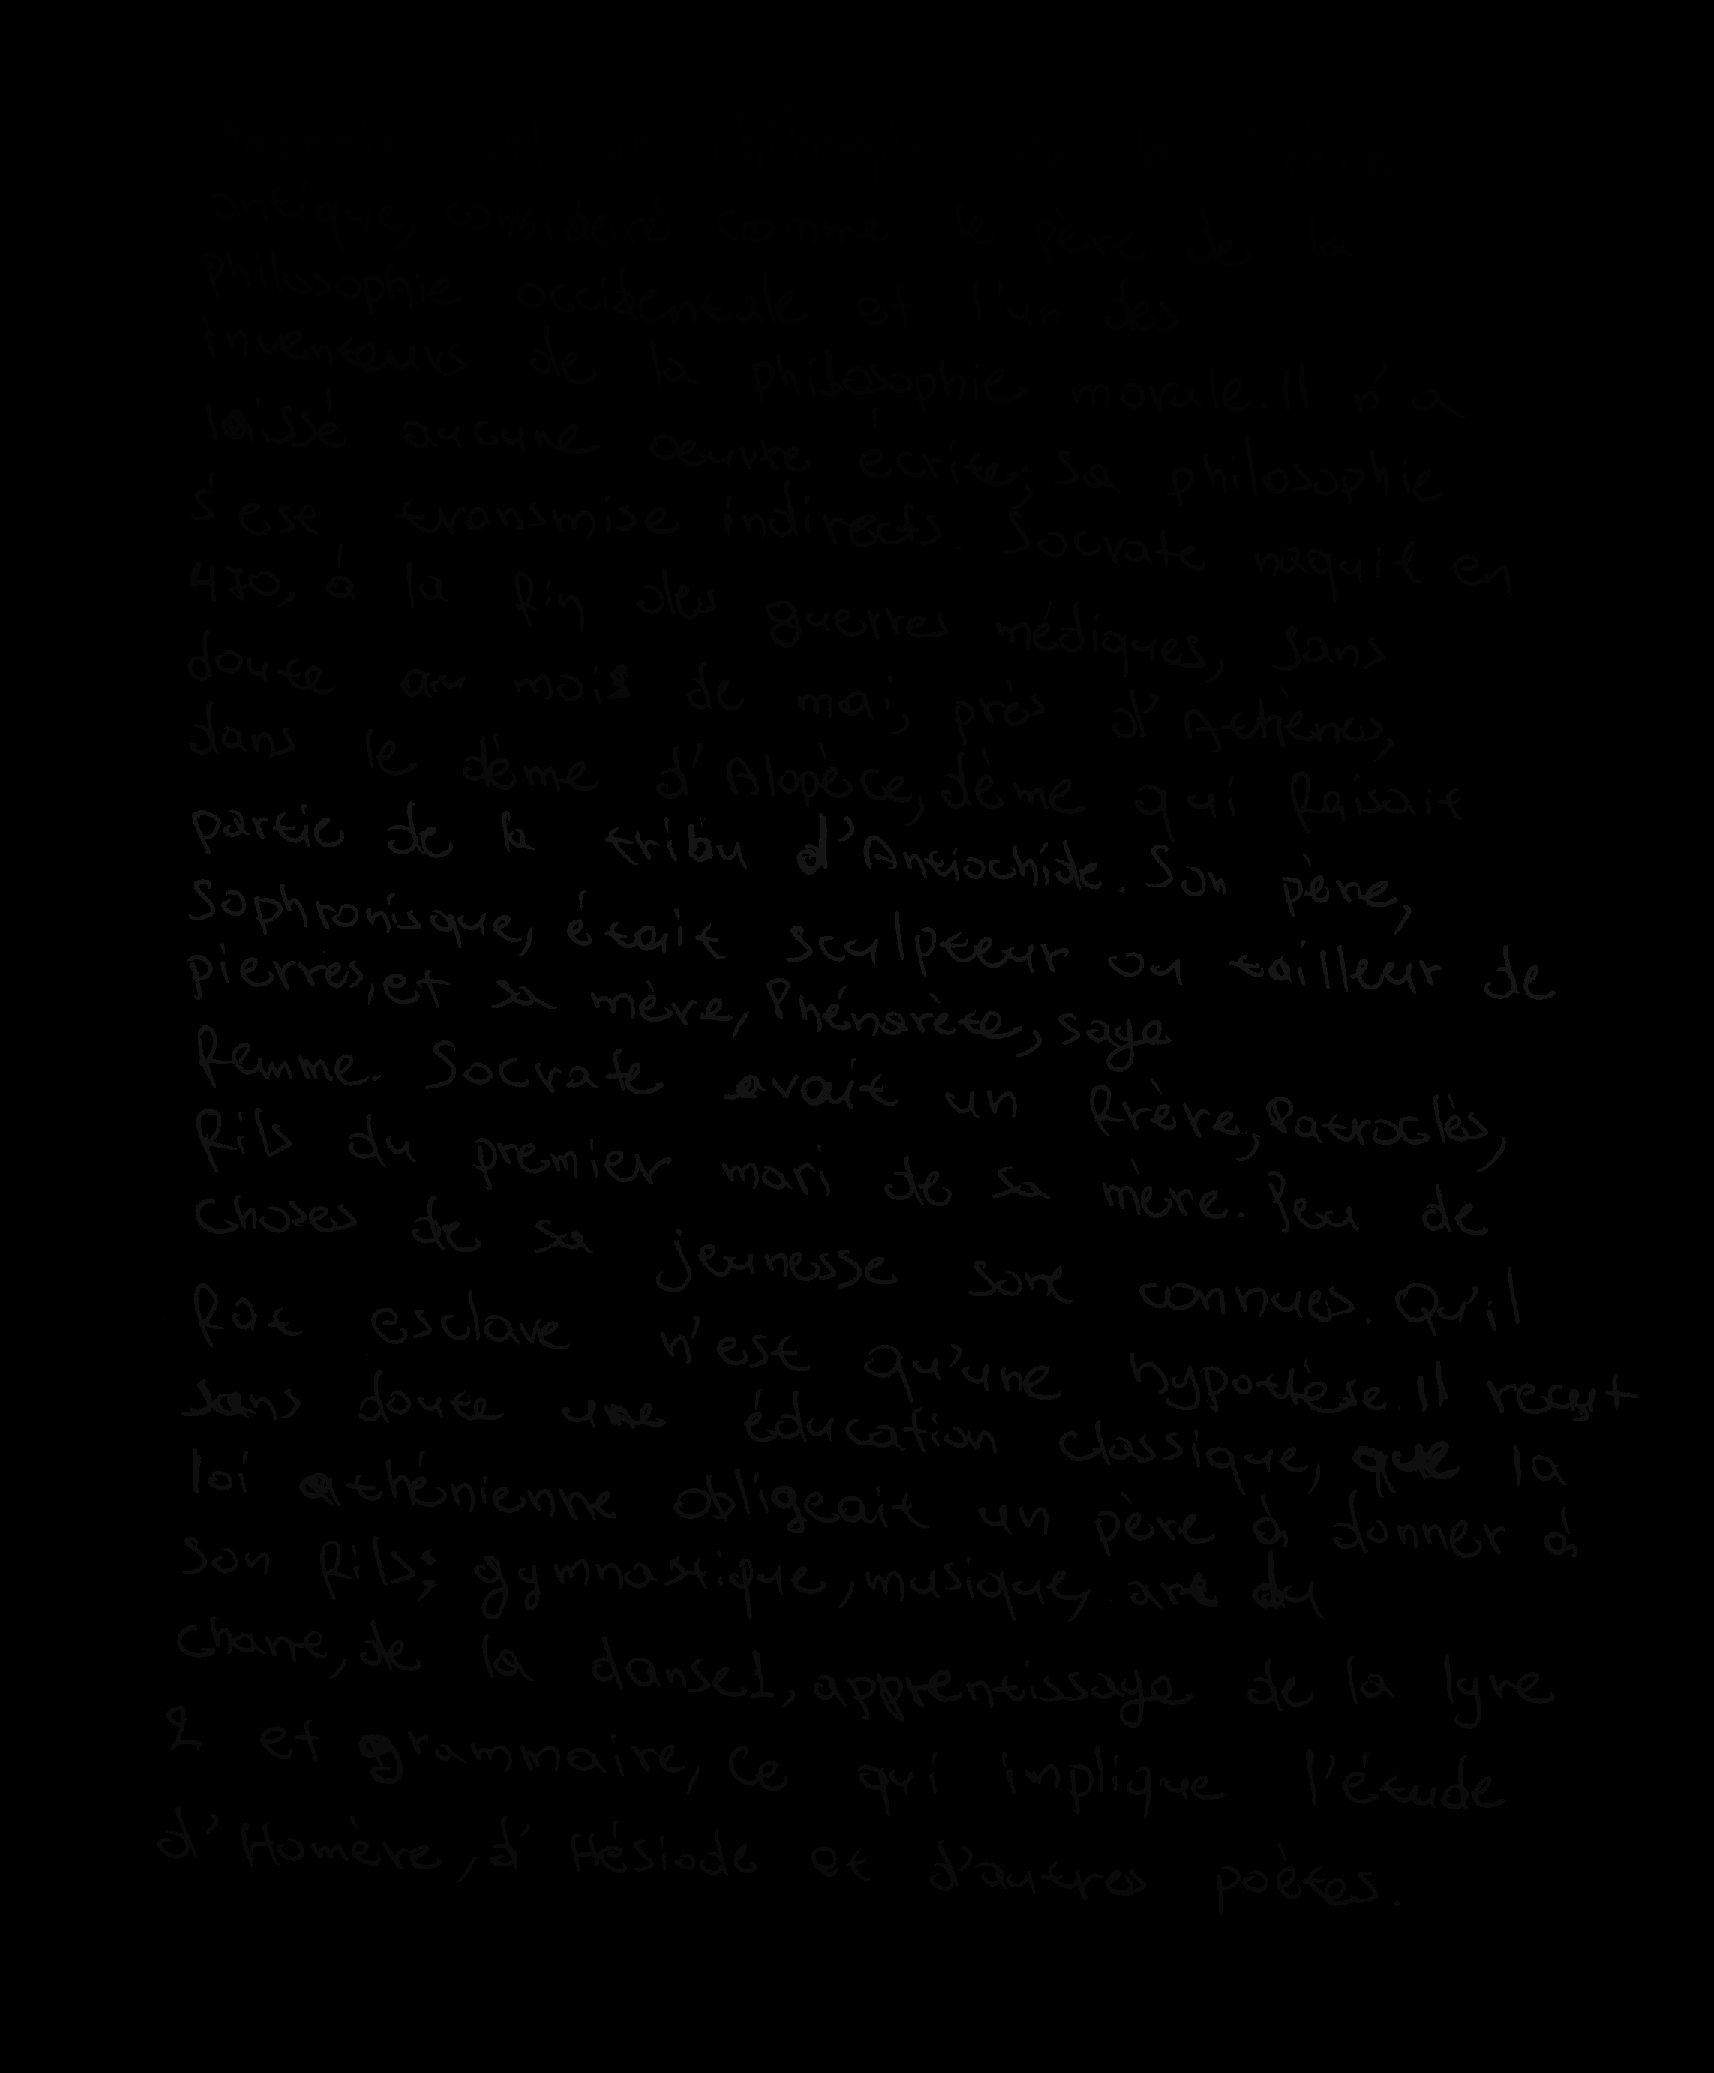 antique, considéré comme le père de la
philosophie occidentale et l'un des
inventeurs de la philosophie morale. Il n'a
laissé aucune œuvre écrite; sa philosophie
s'est transmise indirects. Socrate naquit en
470, à la fin des guerres médiques, sans
doute au mois de mai, près d'Athènes,
dans le dème d'Alopèce, dème qui faisait
partie de la tribu d'Antiochide. Son père,
Sophronisque, était sculpteur ou tailleur de
pierres, et sa mère, Phénarète, sage
femme. Socrate avait un frère, Patroclès,
fils du premier mari de sa mère. Peu de
choses de sa jeunesse sont connues. Qu'il
fût esclave n'est qu'une hypothèse. Il reçut
sans doute une éducation classique, que la
loi athénienne obligeait un père à donner à
son fils; gymnastique, musique, art du
chant, de la danse1, apprentissage de la lyre
2 et grammaire, ce qui implique l'étude
d'Homère, d'Hésiode et d'autres poètes.